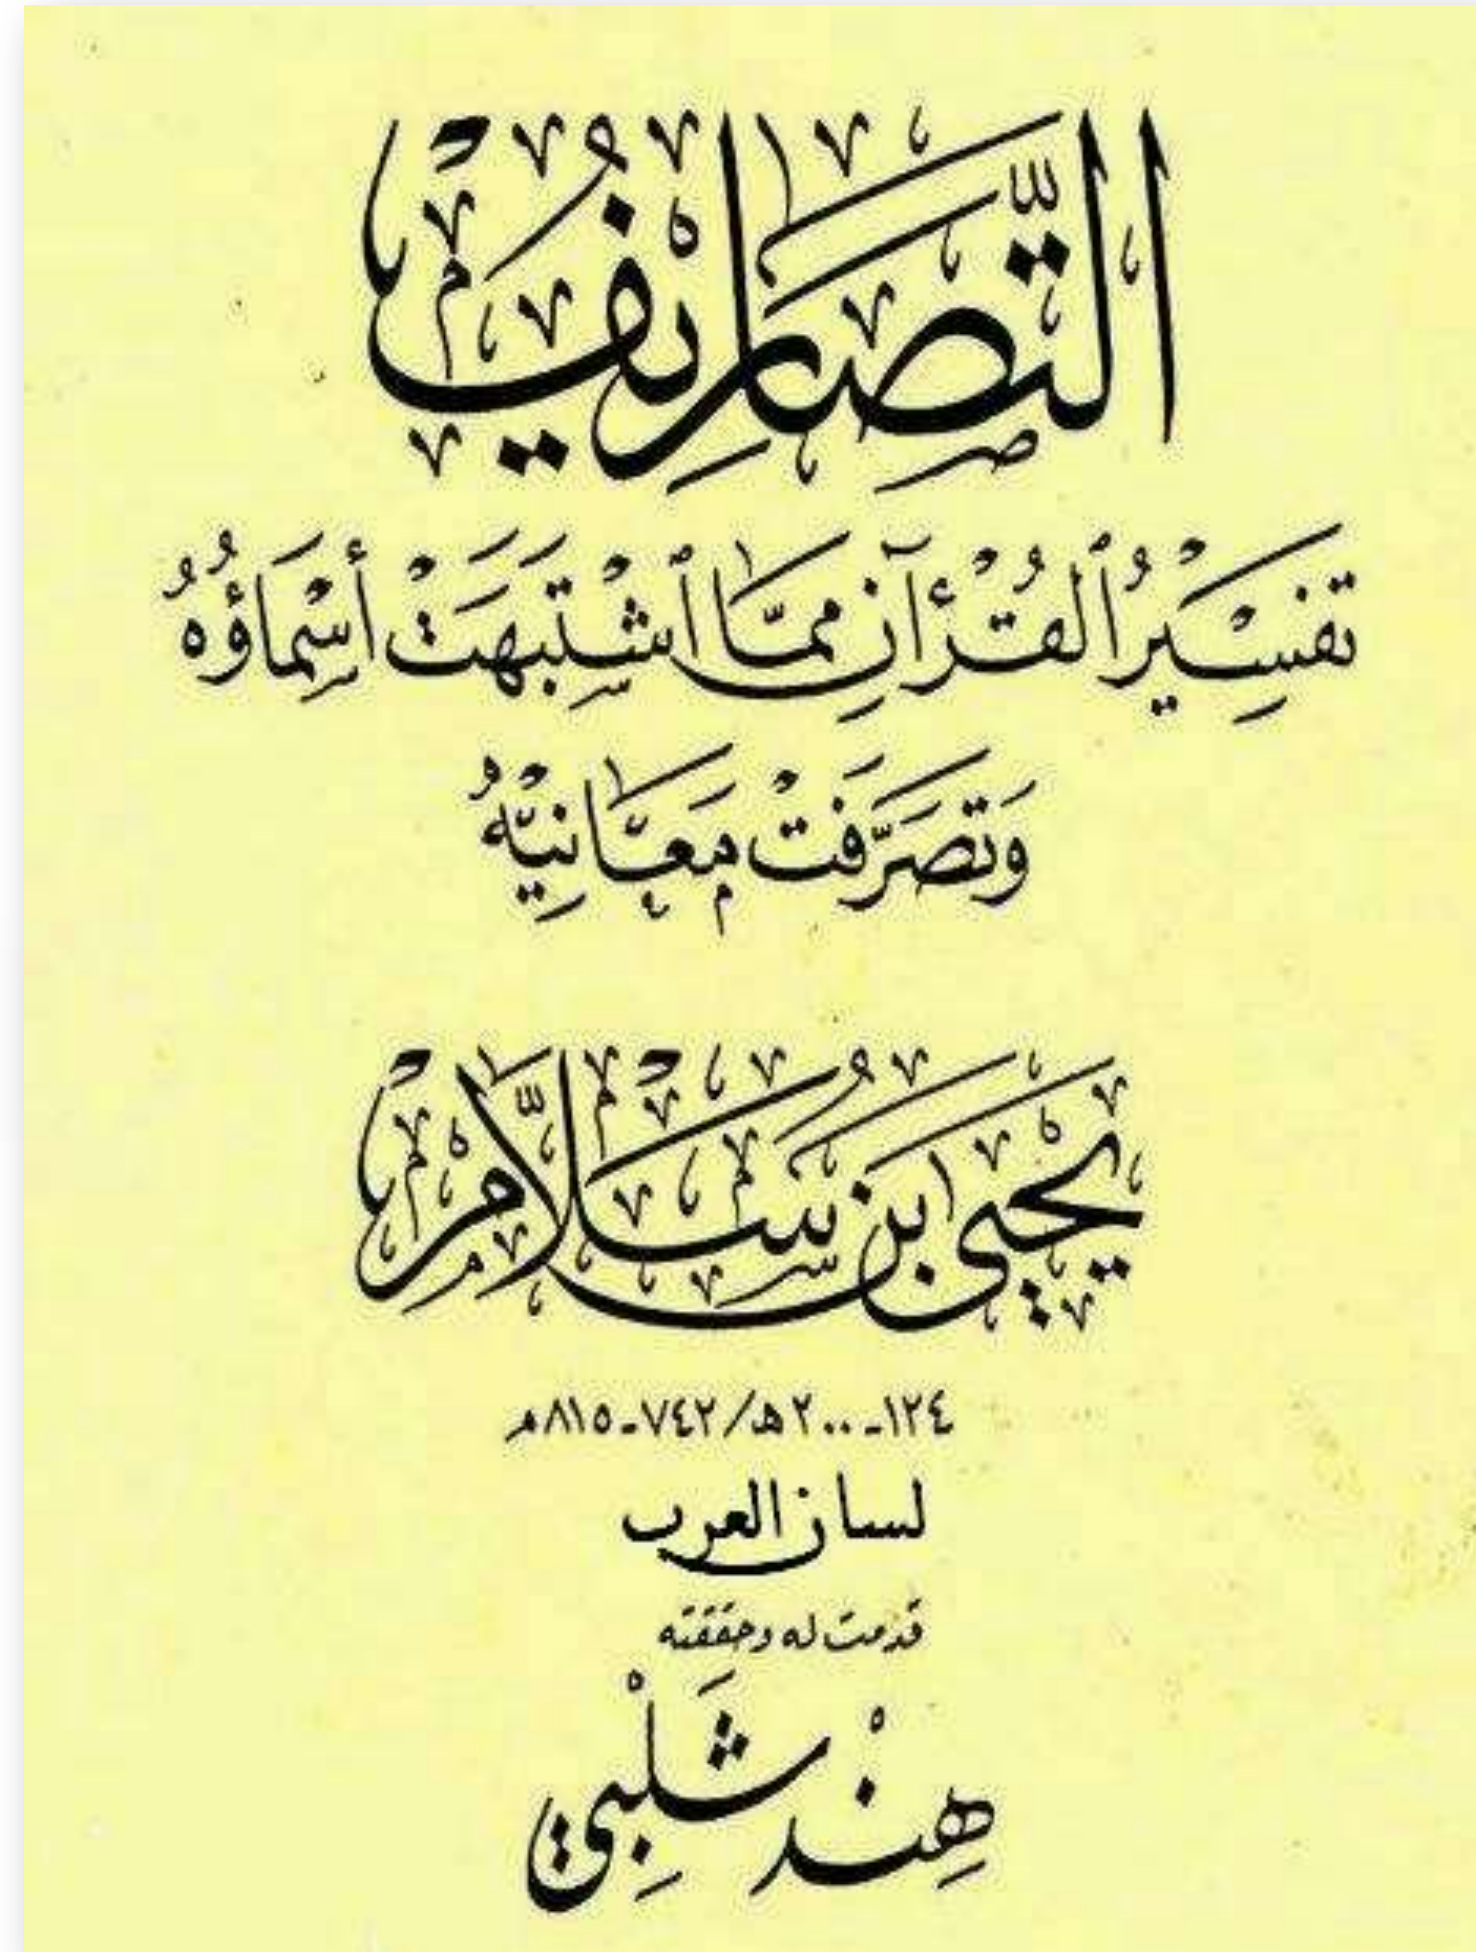 التَّصَارِيفُ
تَفْسِيْرُ ٱلقُرْءآنِ مِمَّا ٱشْتَبَهَتْ أَسْمَاؤُهُ
وَتَصَرَّفَتْ مَعَانِيْهُ
يَحْيَى بْنُ سَلَّامْ
١٢٤ - ٢٠٠ هـ / ٧٤٢ - ٨١٥ م
لسان العرب
قدمت له وحققته
هِنْد شَلْبِي